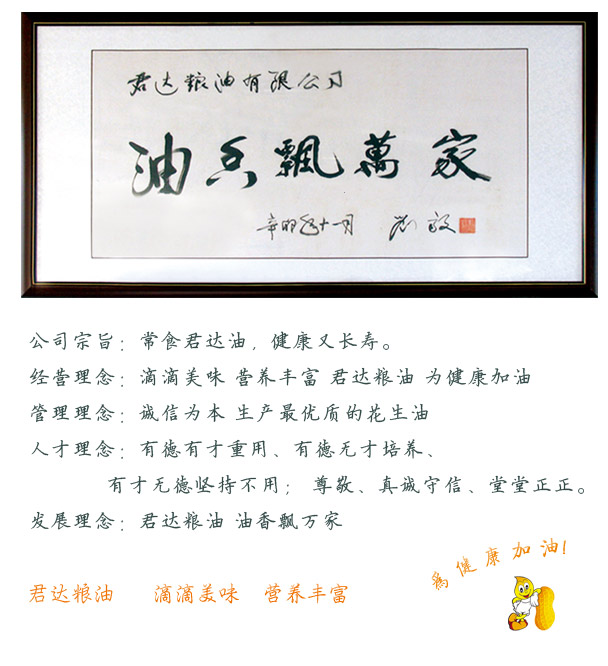 君达粮油有限公司
油香飘萬家
辛卯年十一月 刘敏
公司宗旨：常食君达油，健康又长寿。
经营理念：滴滴美味 营养丰富 君达粮油 为健康加油
管理理念：诚信为本 生产最优质的花生油
人才理念：有德有才重用、有德无才培养、
有才无德坚持不用； 尊敬、真诚守信、堂堂正正。
发展理念：君达粮油 油香飘万家
为健康加油！
君达粮油 滴滴美味 营养丰富